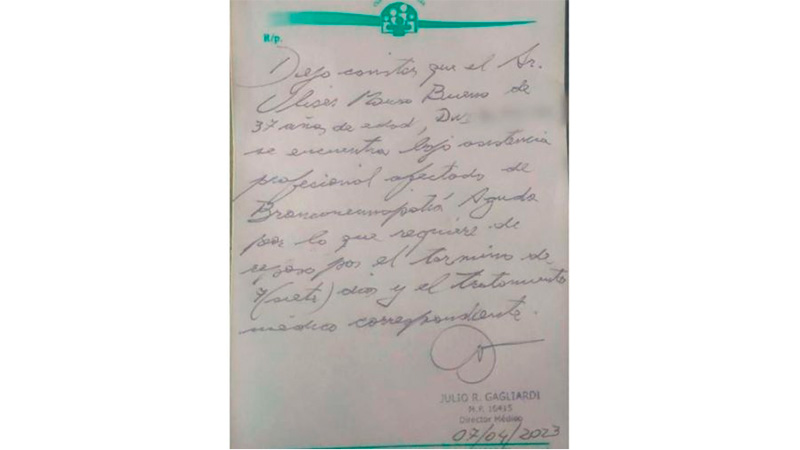 R/p.
Dejo constar que el Sr.
Ulises Mauro Bueno de
37 años de edad,
se encuentra bajo asistencia
profecional afectado de
Bronconeumopatía Aguda
por lo que requiere de
reposo por el termino de
7 (siete) días y el tratamiento
médico correspondiente.
JULIO R. GAGLIARDI
M.P. 10415
Director Médico
07/04/2023